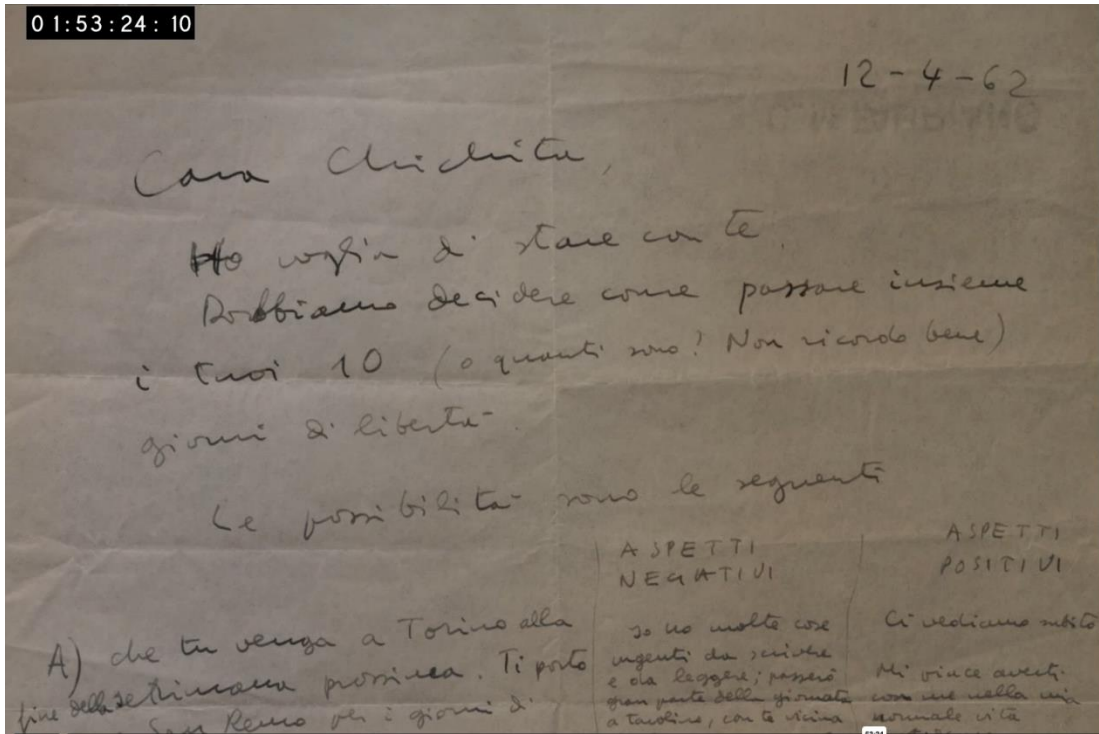 01:53:24:10
12-4-62
Cara Chichita,
Ho voglia di stare con te.
Dobbiamo decidere come passare insieme
i tuoi 10 (o quanti sono? Non ricordo bene)
giorni di libertà.
Le possibilità sono le seguenti
ASPETTI
NEGATIVI
ASPETTI
POSITIVI
A) che tu venga a Torino alla
fine della settimana prossima. Ti porto
San Remo per i giorni di
Io ho molte cose
urgenti da scrivere
e da leggere; passerò
gran parte della giornata
a tavolino, con te vicina
Ci vediamo subito
Mi piace averti
con me nella mia
normale vita